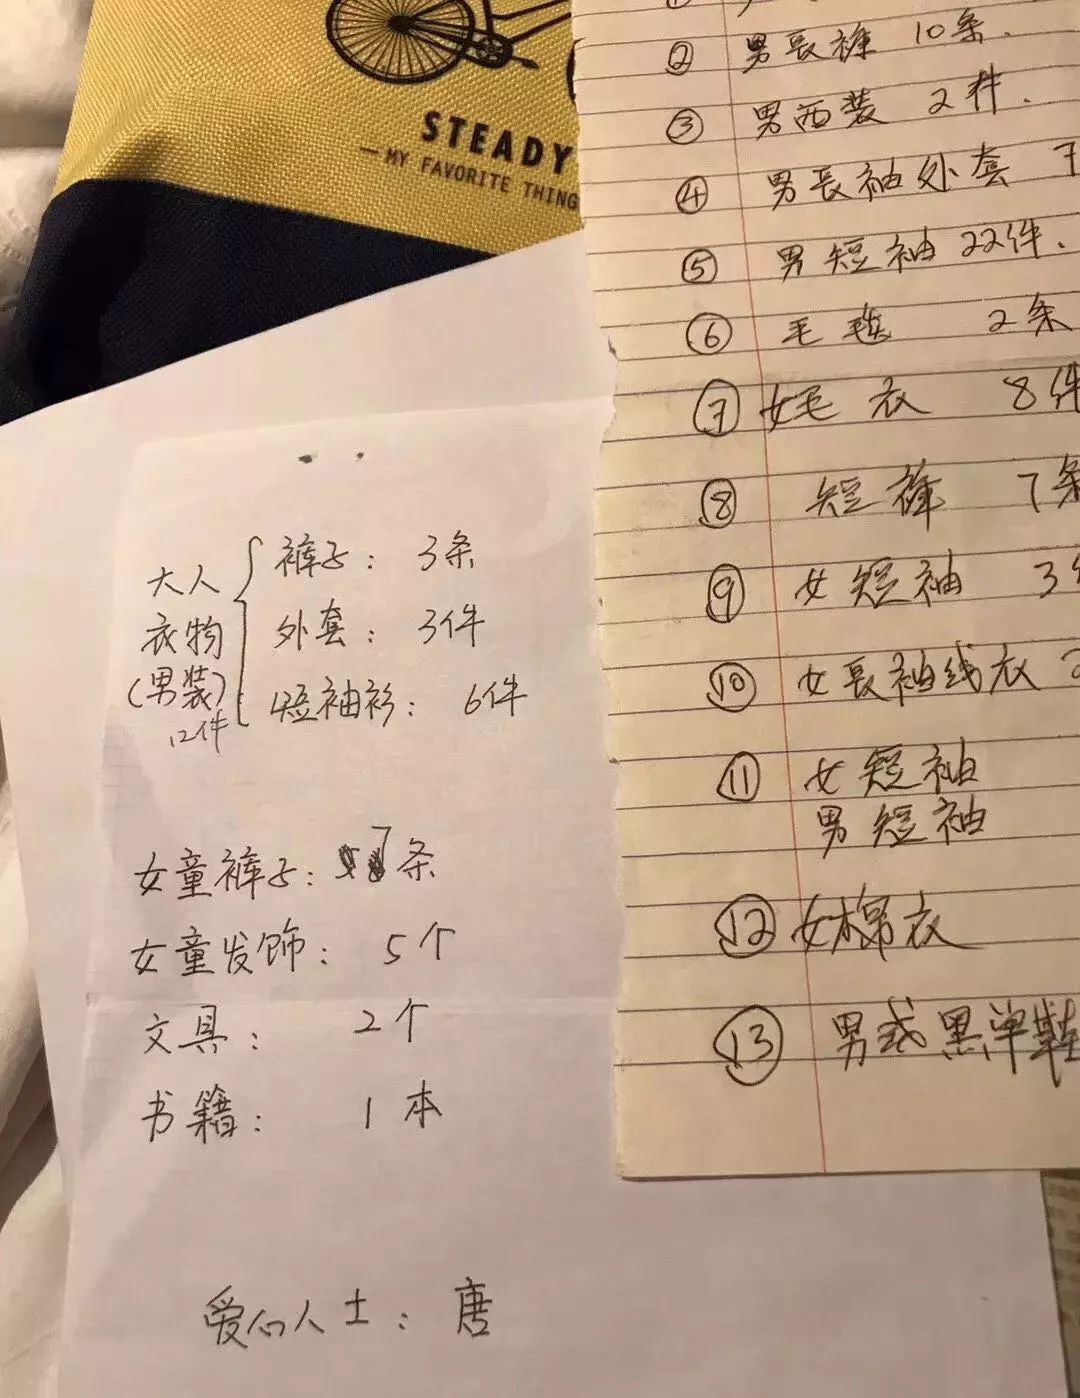 STEADY
— MY FAVORITE THING
② 男長裤 10条.
③ 男西装 2件.
④ 男長袖外套
⑤ 男短袖 22件.
⑥ 毛毯 2条
⑦ 女毛衣 8件
⑧ 短裤 7条
⑨ 女短袖 3件
⑩ 女長袖线衣
⑪ 女短袖
男短袖
⑫ 女棉衣
⑬ 男式黑单鞋
大人
衣物
(男装)
12件
裤子: 3条
外套: 3件
短袖衫: 6件
女童裤子: 7条
女童发饰: 5个
文具: 2个
书籍: 1本
爱心人士: 唐